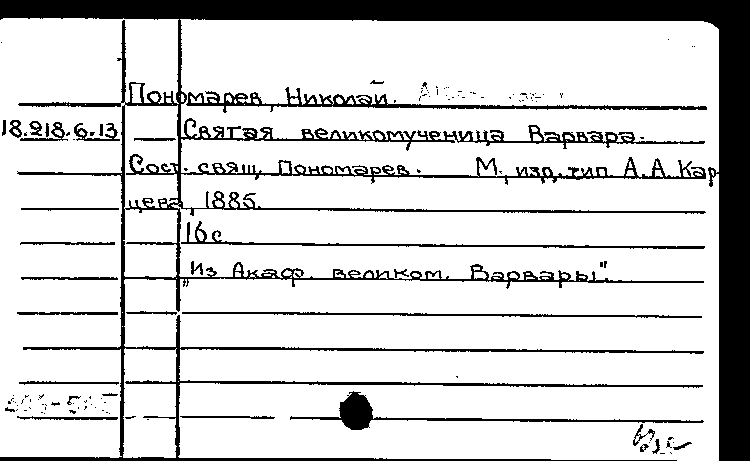 Пономарев, Николай.
18.218.6.13 Святая великомученица Варвара.
Сост. свящ. Пономарев. М., изд. тип. А.А. Кар-
цева, 1885.
16 с
„Из Акаф. великом. Варвары".